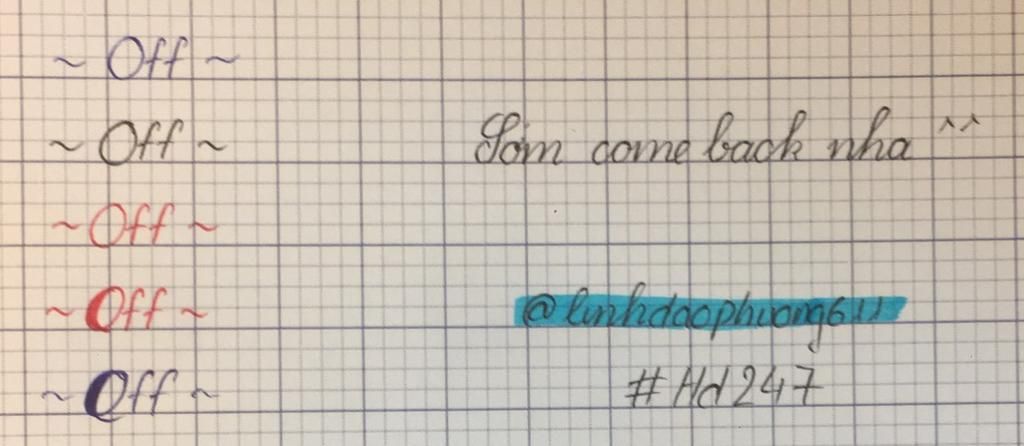 ~ Off ~
~ Off ~
~ Off ~
~ Off ~
~ Off ~
Sớm come back nha ^^
@linhdaophuong611
#Hd247